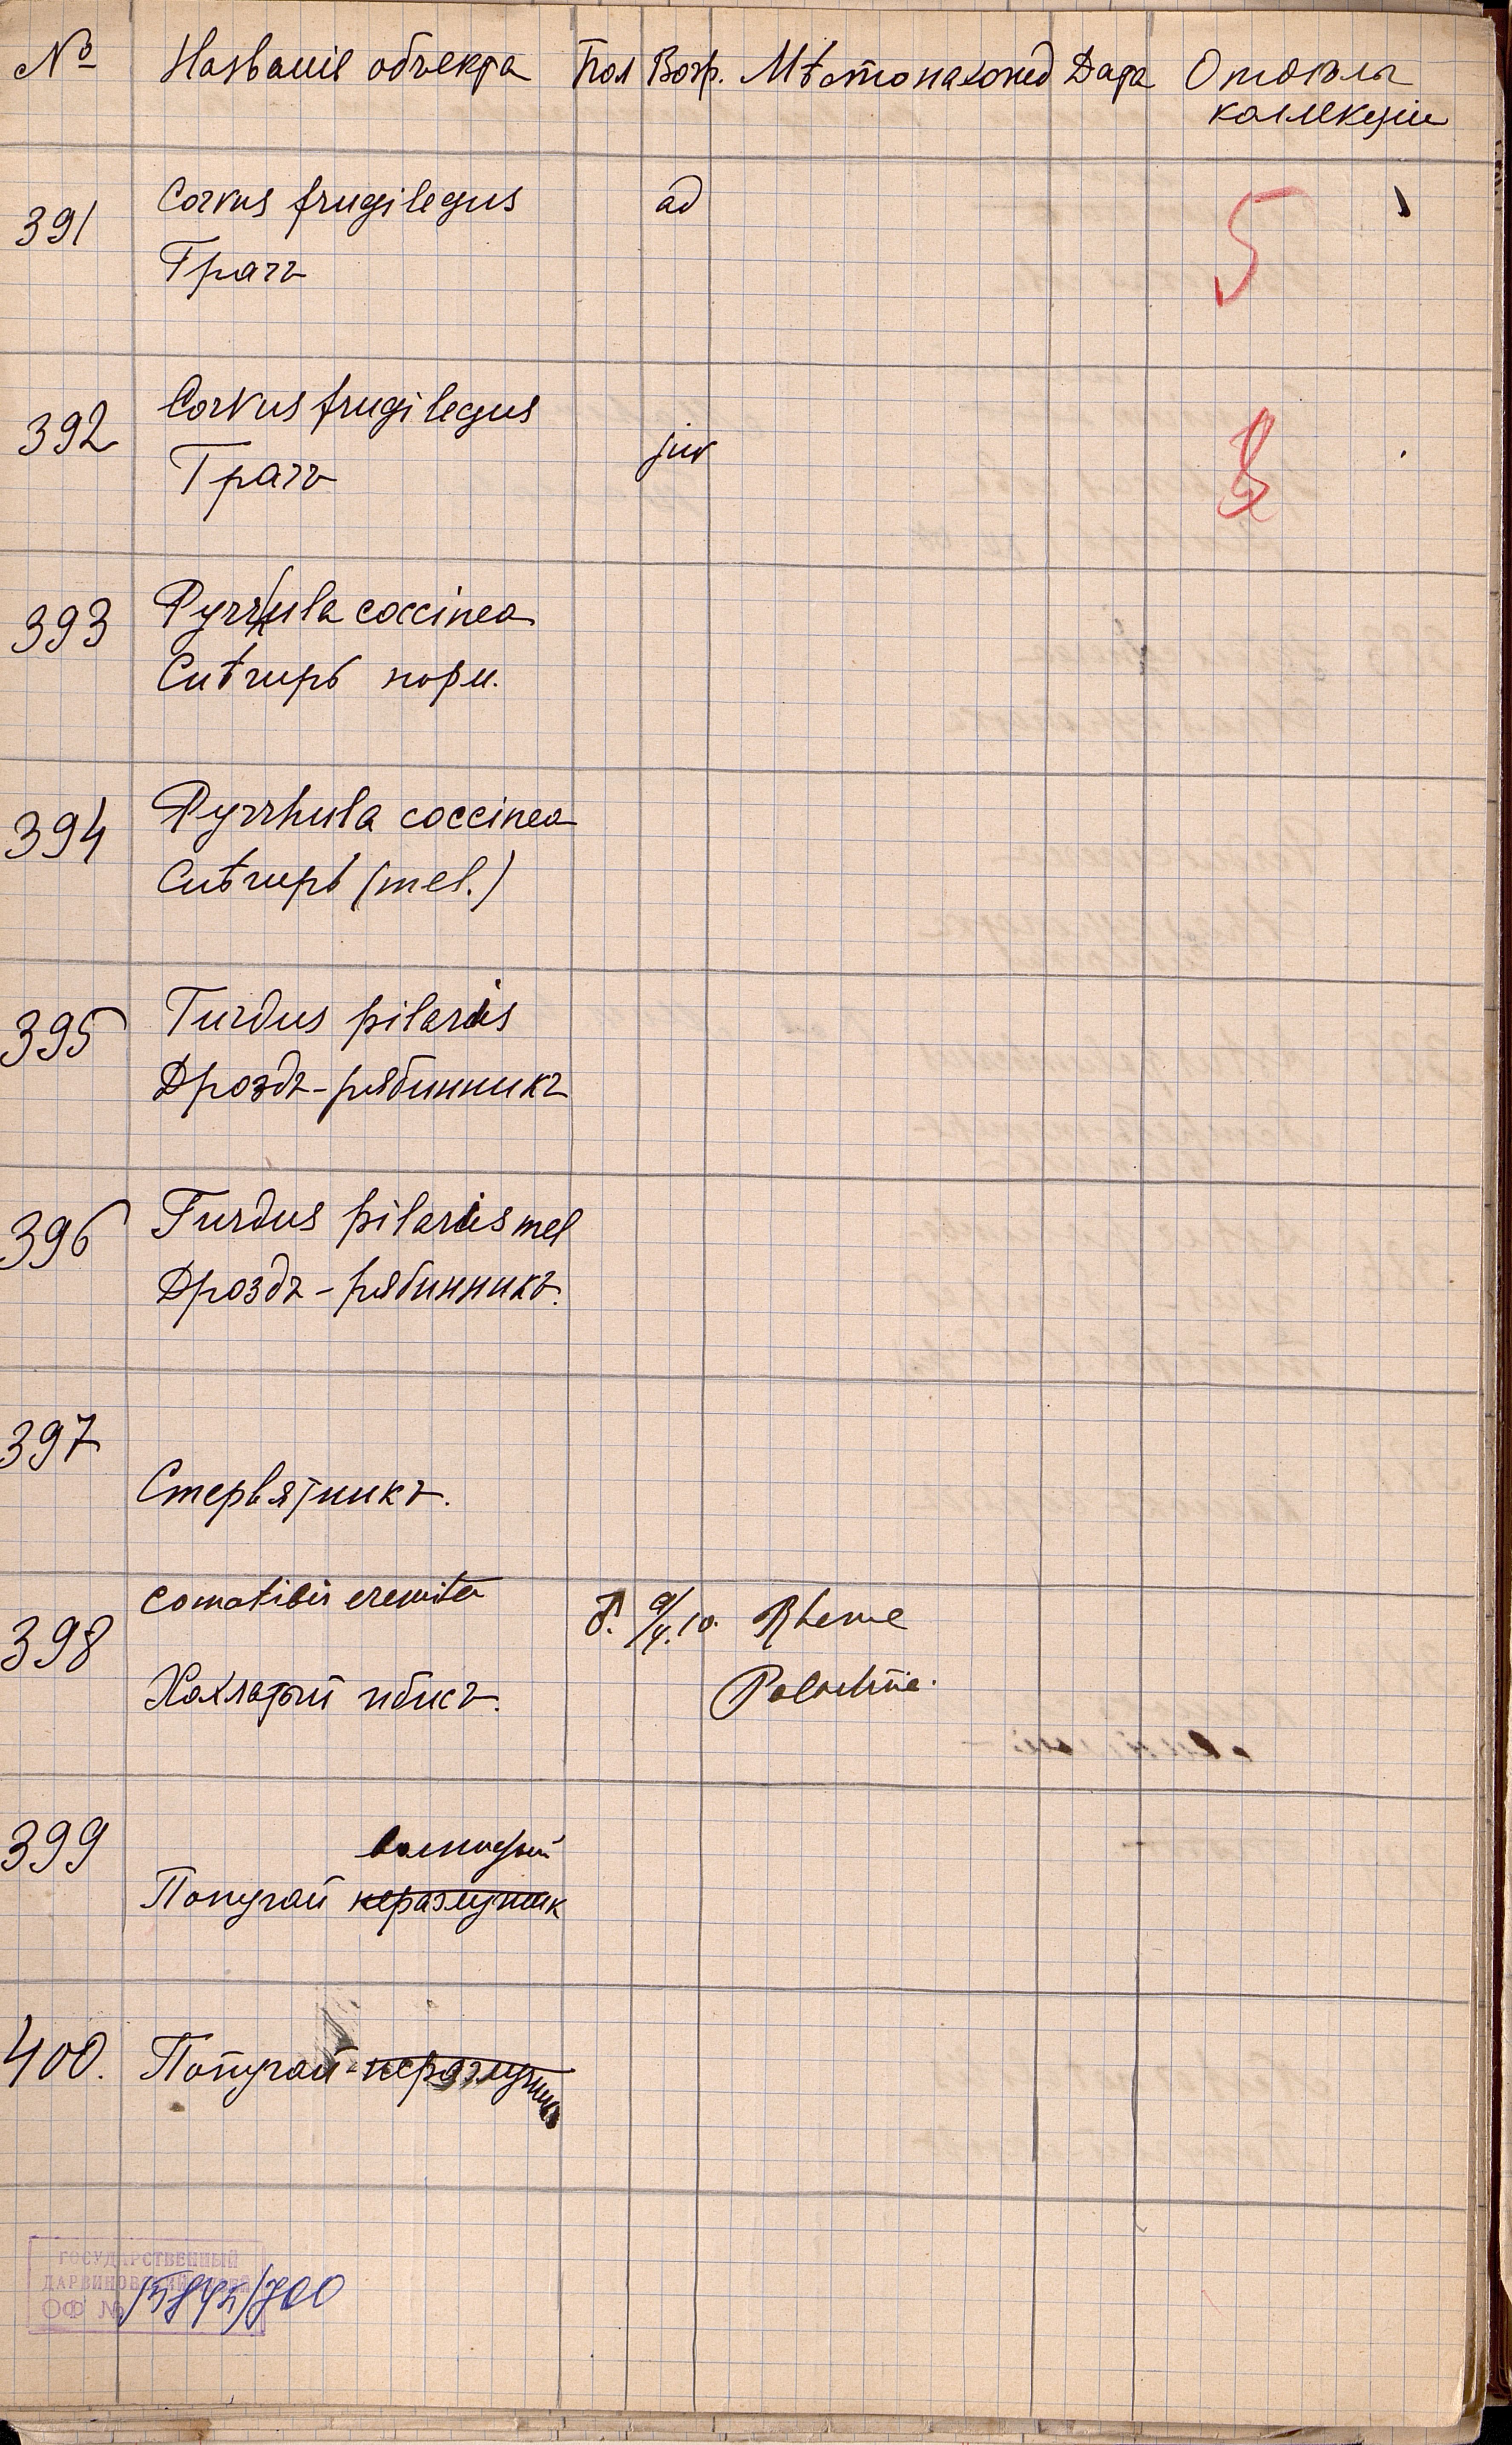 № Названіе объекта Пол Возр. Мѣстонахожд Дата Отдѣлы
коллекціи
391 Corvus frugilegus ad 5
Грачъ
392 Corvus frugilegus juv
Грачъ
393 Pyrrhula coccinea
Снѣгирь норм.
394 Pyrrhula coccinea
Снѣгирь (mel.)
395 Turdus pilaris
Дроздъ-рябинникъ
396 Turdus pilaris mel
Дроздъ-рябинникъ.
397
Стервятникъ.
398 Comatibis eremita ♂. 9/4.10.
Хохлатый ибисъ.
399 волнистый
Попугай неразлучник
400. Попугай-неразлучник
ГОСУДАРСТВЕННЫЙ
ДАРВИНОВСКИЙ МУЗЕЙ
ОФ №